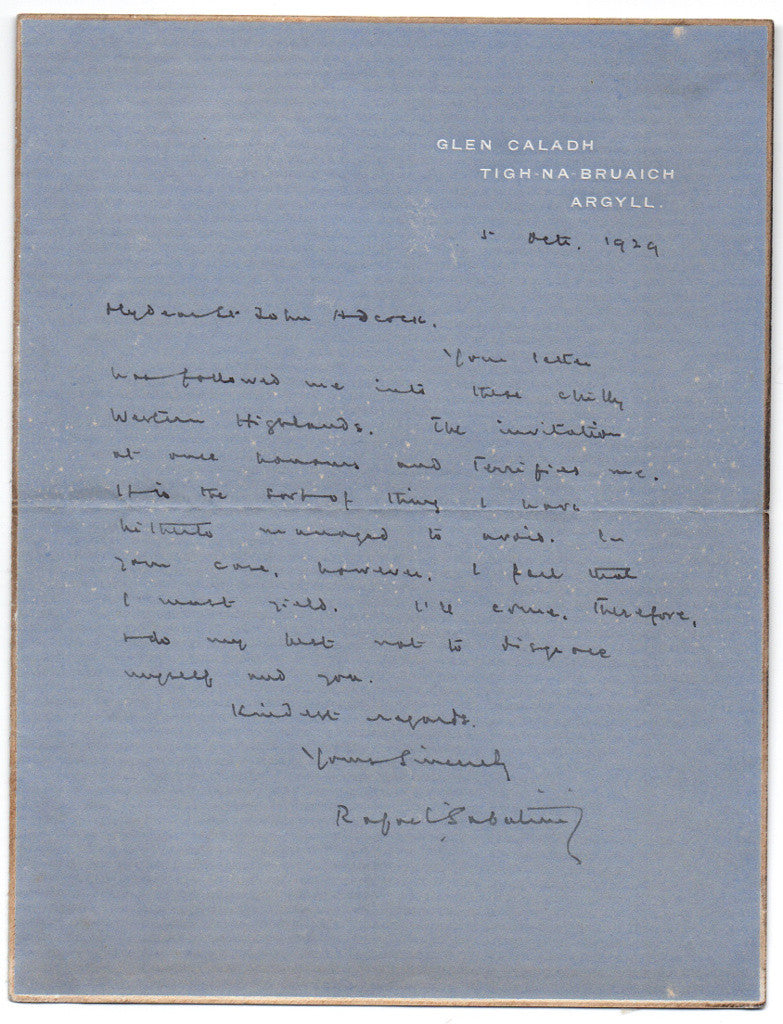 GLEN CALADH
TIGH-NA-BRUAICH
ARGYLL.
5 Octr. 1929
My dear St John Adcock.
Your letter
has followed me into these chilly
Western Highlands. The invitation
at once honours and terrifies me.
It is the sort of thing I have
hitherto managed to avoid. In
your case, however, I feel that
I must yield. I'll come, therefore,
& do my best not to disgrace
myself and you.
Kindest regards.
Yours Sincerely
Rafael Sabatini